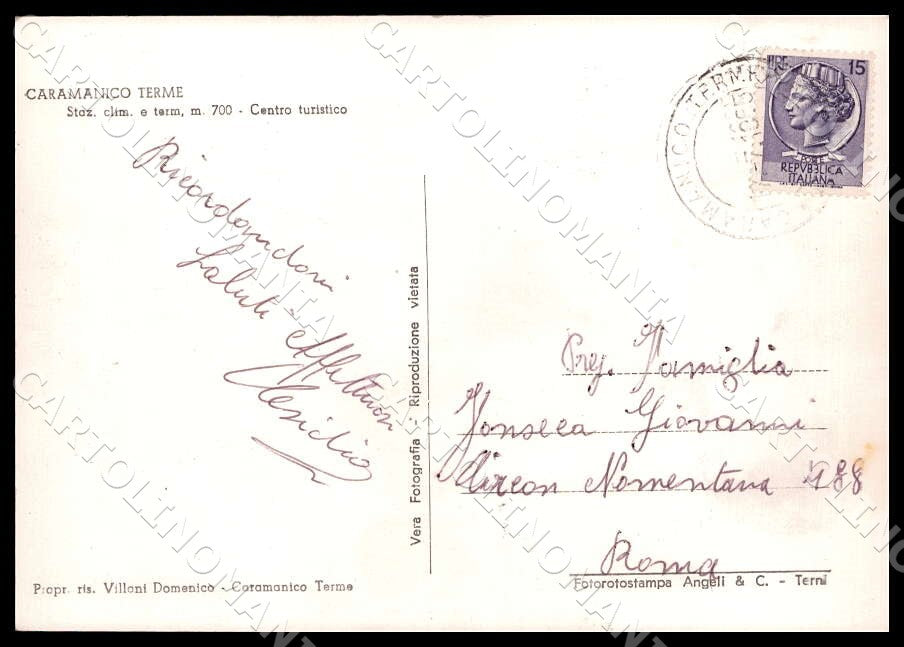 CARAMANICO TERME
Staz. clim. e term, m. 700 - Centro turistico
Ricordandovi
saluti affettuosi
Vera Fotografia - Riproduzione vietata
LIRE 15
REPVBBLICA
ITALIANA
CARAMANICO TERME
Preg. Famiglia
Fonseca Giovanni
Circon Nomentana 188
Roma
Propr. ris. Villani Domenico - Caramanico Terme
Fotorotostampa Angeli & C. - Terni
CARTOLINOMANIA